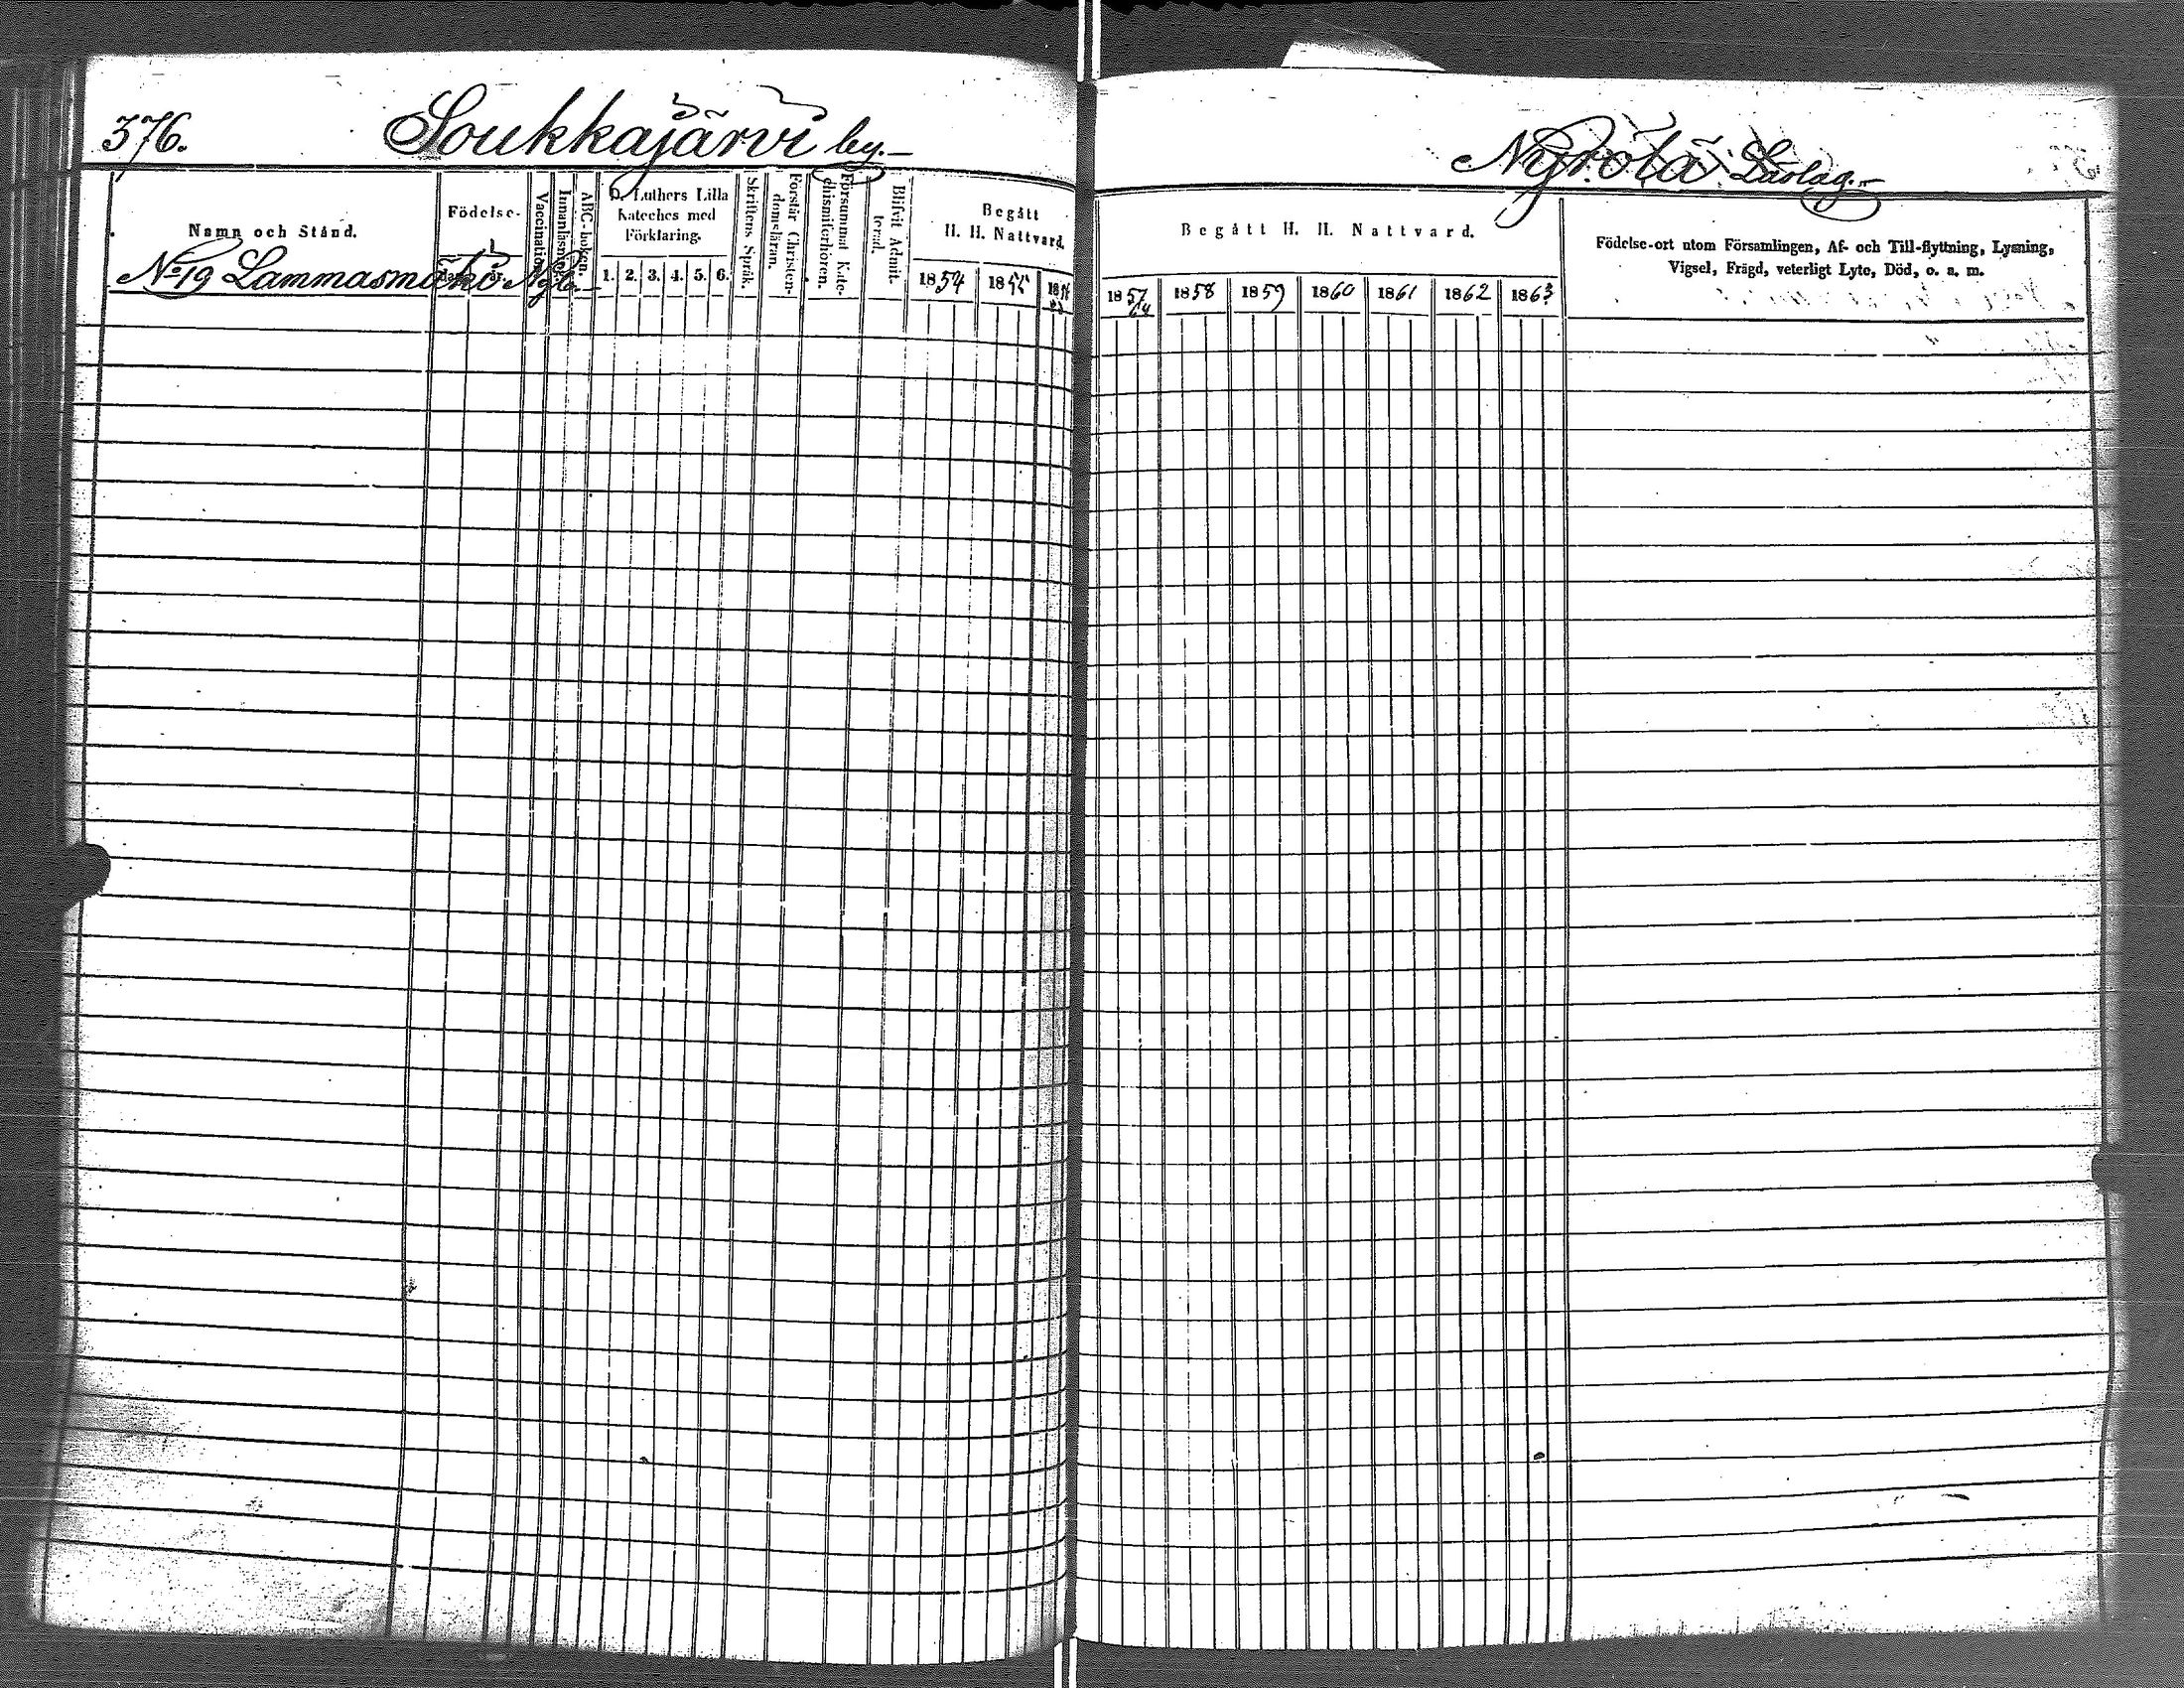 376. Soukkajärvi by.
Namn och Stånd.
Födelse-
dag. år.
Vaccination.
Innanläsning.
ABC-boken.
D. Luthers Lilla
Kateches med
Förklaring.
1. 2. 3. 4. 5. 6.
Skriftens Språk.
Förstår Christen-
domsläran.
Försummat Kate-
chismiförhören.
Blifvit Admit-
terad.
Begått
H. H. Nattvard.
1854 1855 1856
No 19 Lammasmäki Nyb.
Nyrölä Läslag.
Begått H. H. Nattvard.
1857 1858 1859 1860 1861 1862 1863
Födelse-ort utom Församlingen, Af- och Till-flyttning, Lysning,
Vigsel, Frägd, veterligt Lyte, Död, o. a. m.